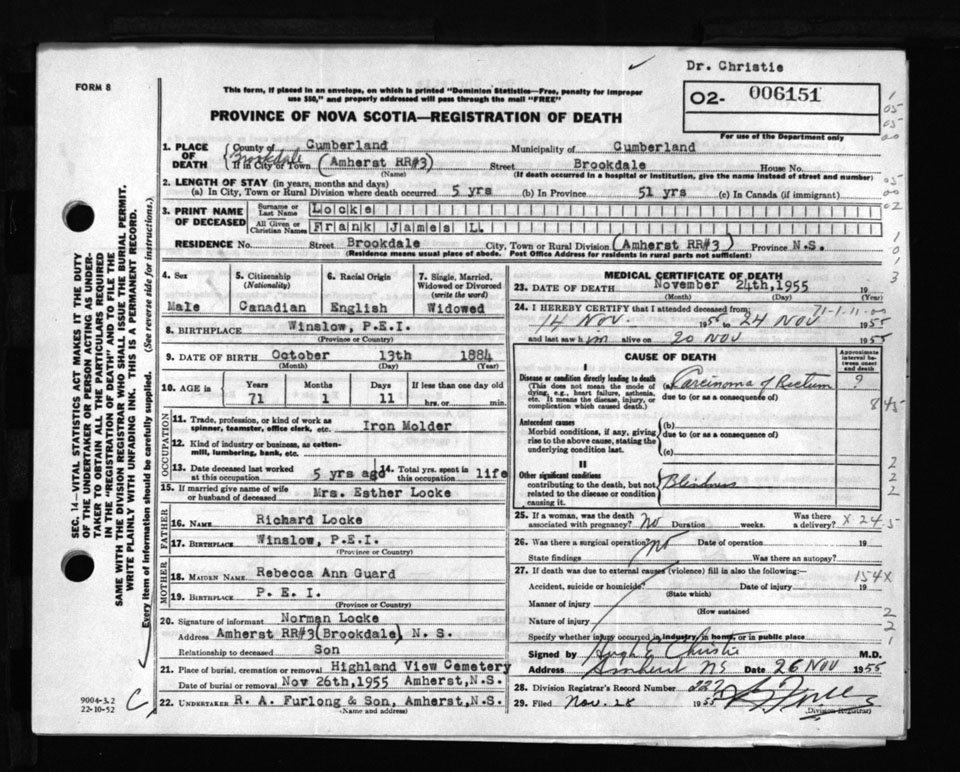 Dr. Christie
FORM 8
O2- 006151
For use of the Department only
This form, if placed in an envelope, on which is printed "Dominion Statistics—Free, penalty for improper
use $50," and properly addressed will pass through the mail "FREE"
PROVINCE OF NOVA SCOTIA—REGISTRATION OF DEATH
1. PLACE OF DEATH { County of Cumberland Municipality of Cumberland
Brookdale
If in City or Town (Amherst RR#3) Street Brookdale House No.
(Name) (If death occurred in a hospital or institution, give the name instead of street and number)
2. LENGTH OF STAY (in years, months and days)
(a) In City, Town or Rural Division where death occurred 5 yrs (b) In Province 51 yrs (c) In Canada (if immigrant)
3. PRINT NAME OF DECEASED { Surname or Last Name Locke
All Given or Christian Names Frank James L.
RESIDENCE No. Street Brookdale City, Town or Rural Division (Amherst RR#3) Province N.S.
(Residence means usual place of abode. Post Office Address for residents in rural parts not sufficient)
4. Sex 5. Citizenship (Nationality) 6. Racial Origin 7. Single, Married, Widowed or Divorced (write the word)
Male Canadian English Widowed
8. BIRTHPLACE Winslow, P.E.I.
(Province or Country)
9. DATE OF BIRTH October 13th 1884
(Month) (Day) (Year)
10. AGE IS Years Months Days If less than one day old
71 1 11 hrs. or min.
OCCUPATION
11. Trade, profession, or kind of work as spinner, teamster, office clerk, etc. Iron Molder
12. Kind of industry or business, as cotton-mill, lumbering, bank, etc.
13. Date deceased last worked at this occupation 5 yrs ago 14. Total yrs. spent in this occupation life
15. If married give name of wife or husband of deceased Mrs. Esther Locke
FATHER
16. NAME Richard Locke
17. BIRTHPLACE Winslow, P.E.I.
(Province or Country)
MOTHER
18. MAIDEN NAME Rebecca Ann Guard
19. BIRTHPLACE P. E. I.
(Province or Country)
20. Signature of informant Norman Locke
Address Amherst RR#3(Brookdale) N. S.
Relationship to deceased Son
21. Place of burial, cremation or removal Highland View Cemetery
Date of burial or removal Nov 26th,1955 Amherst,N.S.
22. UNDERTAKER R. A. Furlong & Son, Amherst,N.S.
(Name and address)
MEDICAL CERTIFICATE OF DEATH
23. DATE OF DEATH November 24th,1955 19
(Month) (Day) (Year)
24. I HEREBY CERTIFY that I attended deceased from: 71-1-11-00
14 Nov. 1955 to 24 Nov 1955
and last saw him alive on 20 Nov 1955
CAUSE OF DEATH
Approximate interval between onset and death
I
Disease or condition directly leading to death (a) Carcinoma of Rectum ?
(This does not mean the mode of dying, e.g., heart failure, asthenia, etc. It means the disease, injury, or complication which caused death.)
due to (or as a consequence of)
Antecedent causes
Morbid conditions, if any, giving rise to the above cause, stating the underlying condition last.
(b)
due to (or as a consequence of)
(c)
II
Other significant conditions
contributing to the death, but not related to the disease or condition causing it.
Blindness
25. If a woman, was the death associated with pregnancy? No Duration weeks. Was there a delivery? X-24-5
26. Was there a surgical operation? No Date of operation 19
State findings Was there an autopsy?
27. If death was due to external causes (violence) fill in also the following:— 154X
Accident, suicide or homicide? Date of injury 19
(State which)
Manner of injury
(How sustained
Nature of injury
Specify whether injury occurred in industry, in home, or in public place
Signed by Hugh E Christie M.D.
Address Amherst NS Date 26 Nov 1955
28. Division Registrar's Record Number 227
29. Filed Nov. 28 1955
(Division Registrar)
SEC. 14—VITAL STATISTICS ACT MAKES IT THE DUTY
OF THE UNDERTAKER OR PERSON ACTING AS UNDER-
TAKER TO OBTAIN ALL THE PARTICULARS REQUIRED
IN THE "REGISTRATION OF DEATH" AND TO FILE THE
SAME WITH THE DIVISION REGISTRAR WHO SHALL ISSUE THE BURIAL PERMIT.
WRITE PLAINLY WITH UNFADING INK. THIS IS A PERMANENT RECORD.
Every item of information should be carefully supplied. (See reverse side for instructions.)
9004-3.2
22-10-52
C
1
05
05
00
05
00
02
1
0
1
3
845
2
2
2
2
2
1